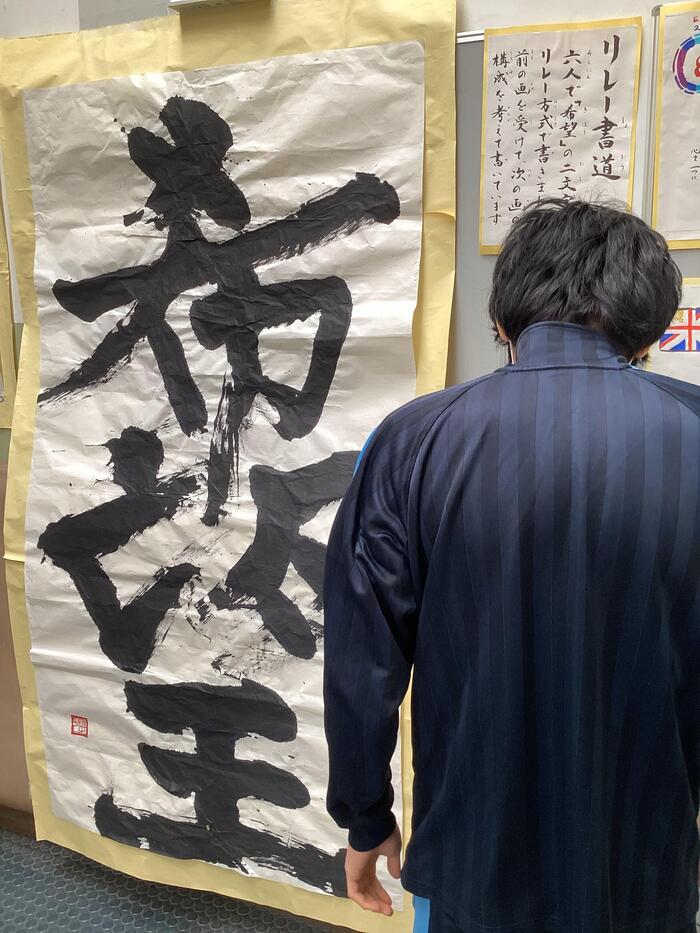 希望
リレー書道
六人で「希望」の二文
リレー方式で書きま
前の画を受けて次の画の
構成を考えて書いています